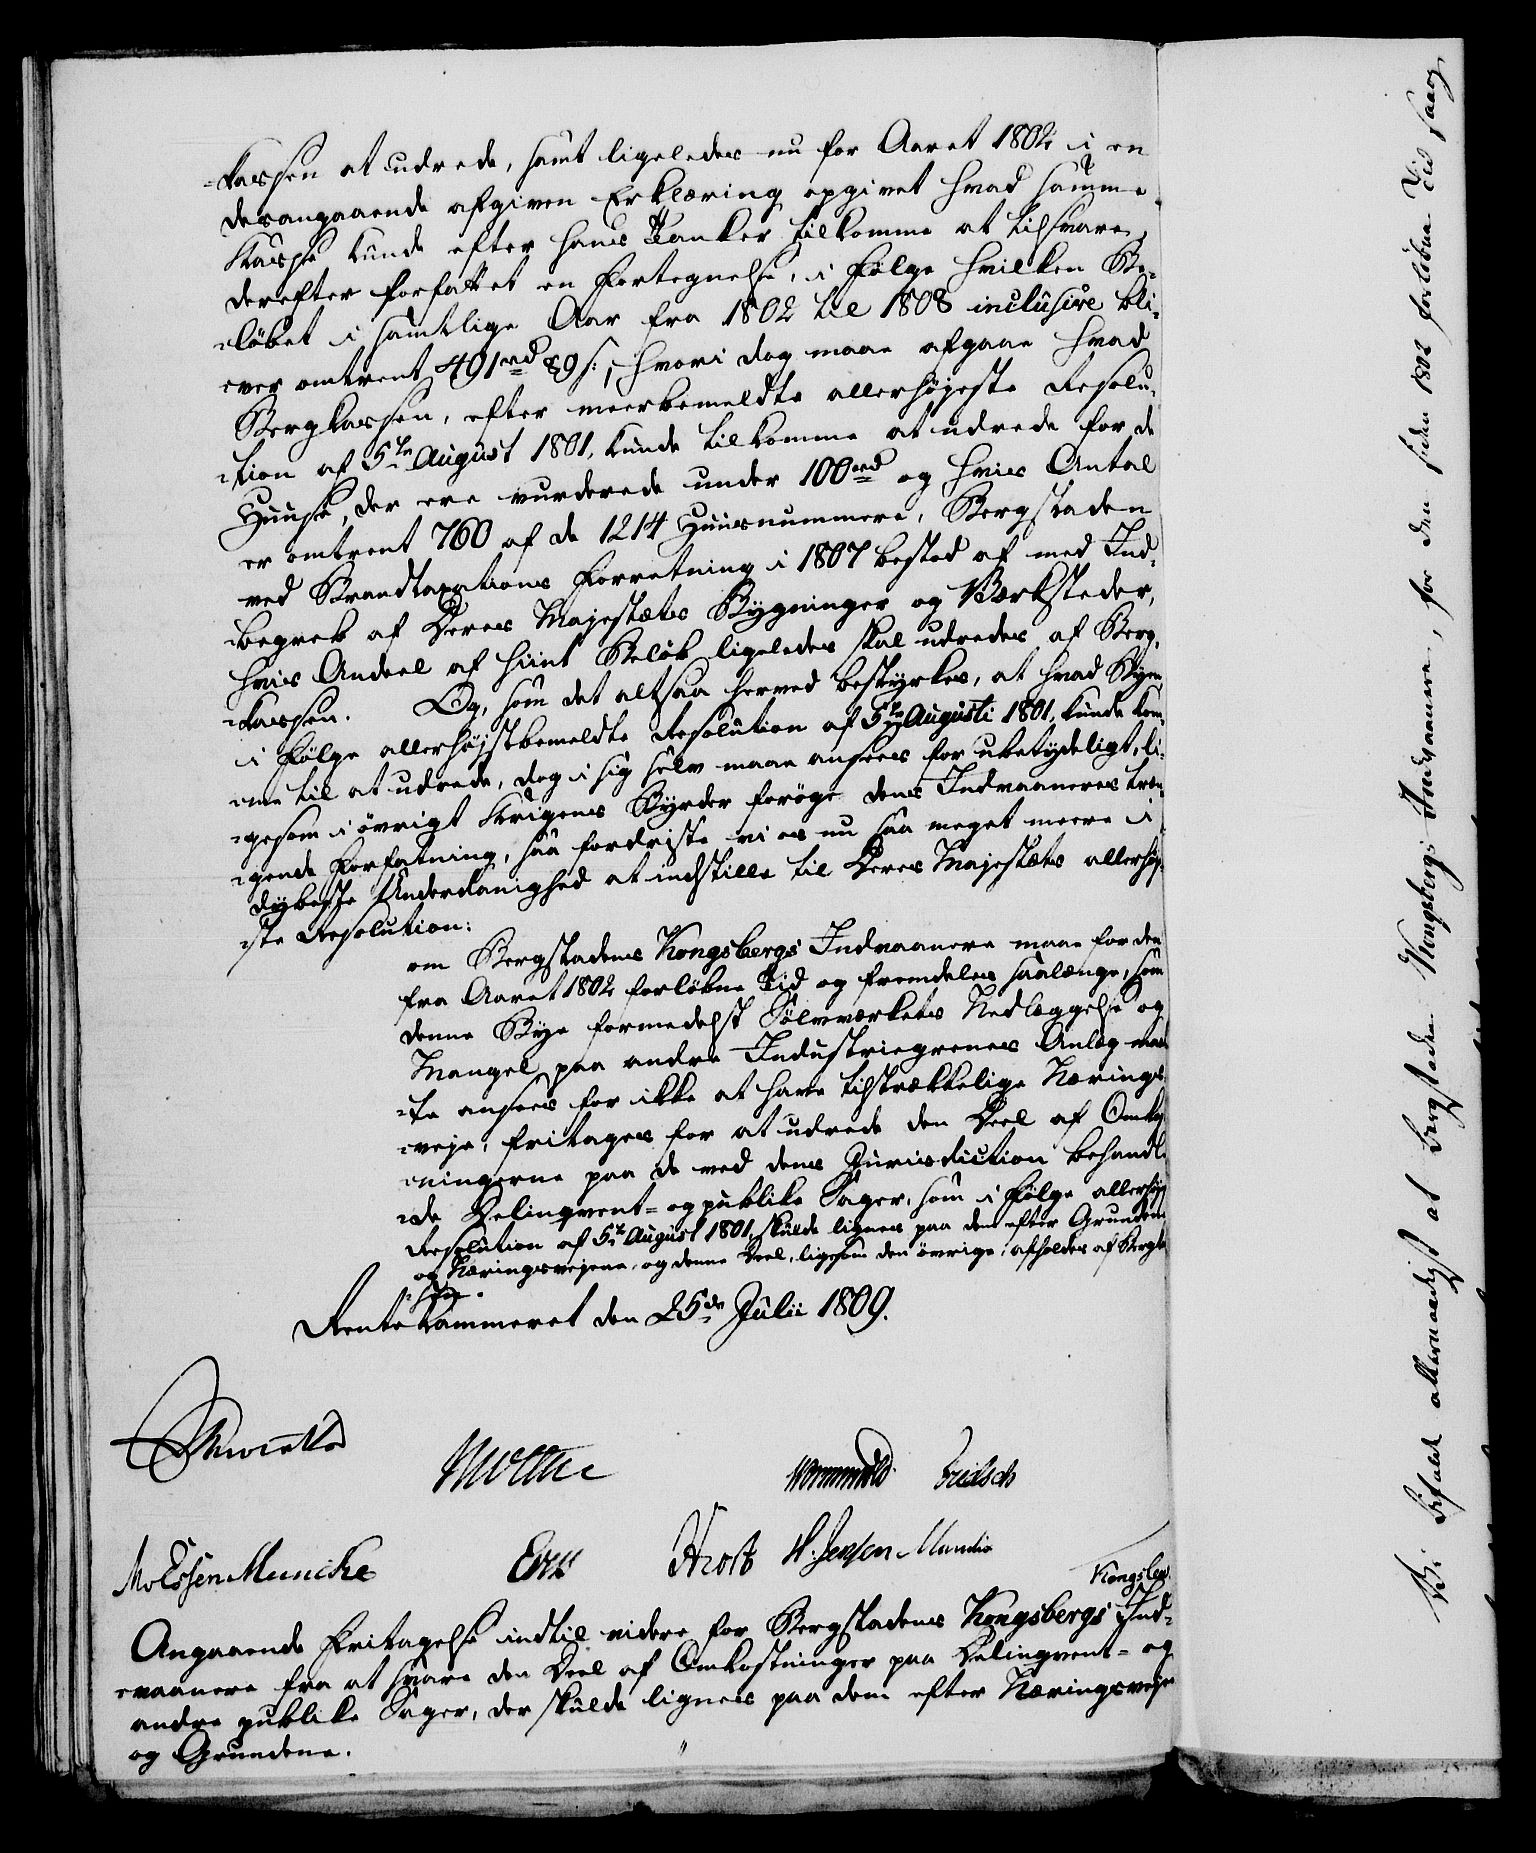 -kassen at udrede, samt ligeledes nu for Aaret 1802 i en
desangaaende afgiven Erklæring opgivet hvad samme
Kasse kunde efter hans Tanker tilkomme at tilsvare,
derefter forfattet en Fortegnelse, i Følge hvilken Be-
-løbet i samtlige Aar fra 1802 til 1808 inclusive bli-
-ver omtrent 491 rd 89 s:, hvori dog maae afgaae hvad
Bergkassen, efter meerbemeldte allerhøjeste Resolu-
-tion af 5te August 1801, kunde tilkomme at udrede for de
Huuse, der ere vurderede under 100 rd og hvis Antal
er omtrent 760 af de 1214 Huusnummere, Bergstaden
ved Brandtaxations Forretning i 1807 bestod af med Ind-
-begreb af Deres Majestæts Bygninger og Værksteder,
hvis Andeel af hiint Beløb ligeledes skal udredes af Berg-
-kassen. Og, som det altsaa herved bestyrkes, at hvad Byen
i Følge allerhøjstbemeldte Resolution af 5te Augusti 1801, kunde kom-
-me til at udrede, dog i sig selv maae ansees for ubetydeligt, li-
-gesom i øvrigt Krigens Byrder forøge dens Indvaaneres træn-
-gende Forfatning, saa fordriste vi os nu saa meget meere i
dybeste Underdanighed at indstille til Deres Majestæts allerhøj-
-ste Resolution:
om Bergstadens Kongsbergs Indvaanere maae for den
fra Aaret 1802 forløbne Tid og fremdeles saalænge, som
denne Bye formedelst Sølvværkets Nedlæggelse og
Mangel paa andre Industriegrenes Anlæg maa-
-te ansees for ikke at have tilstrækkelige Nærings-
-veje, fritages for at udrede den Deel af Omkost-
-ningerne paa de ved dens Jurisdiction behandle-
-de Delinqvent- og publike Sager, som i Følge allerhøj
Resolution af 5te August 1801, skulde lignes paa dem efter Grundene
og Næringsvejene, og denne Deel, ligesom den øvrige, afholdes af Bergkas-
-sen.
Rentekammeret den 25de Julii 1809.
Moltke
Wormskiold
Molssen Muncke H. Jensen Mandix
Kongsber
Angaaende Fritagelse indtil videre for Bergstadens Kongsbergs Ind-
-vaanere fra at svare den Deel af Omkostninger paa Delinqvent- og
andre publike Sager, der skulde lignes paa dem efter Næringsveje
og Grundene.
Vi bifalde allernaadigst at Bergstaden Kongsbergs Indvaanere, for den siden 1802 forløbne Tid saavel